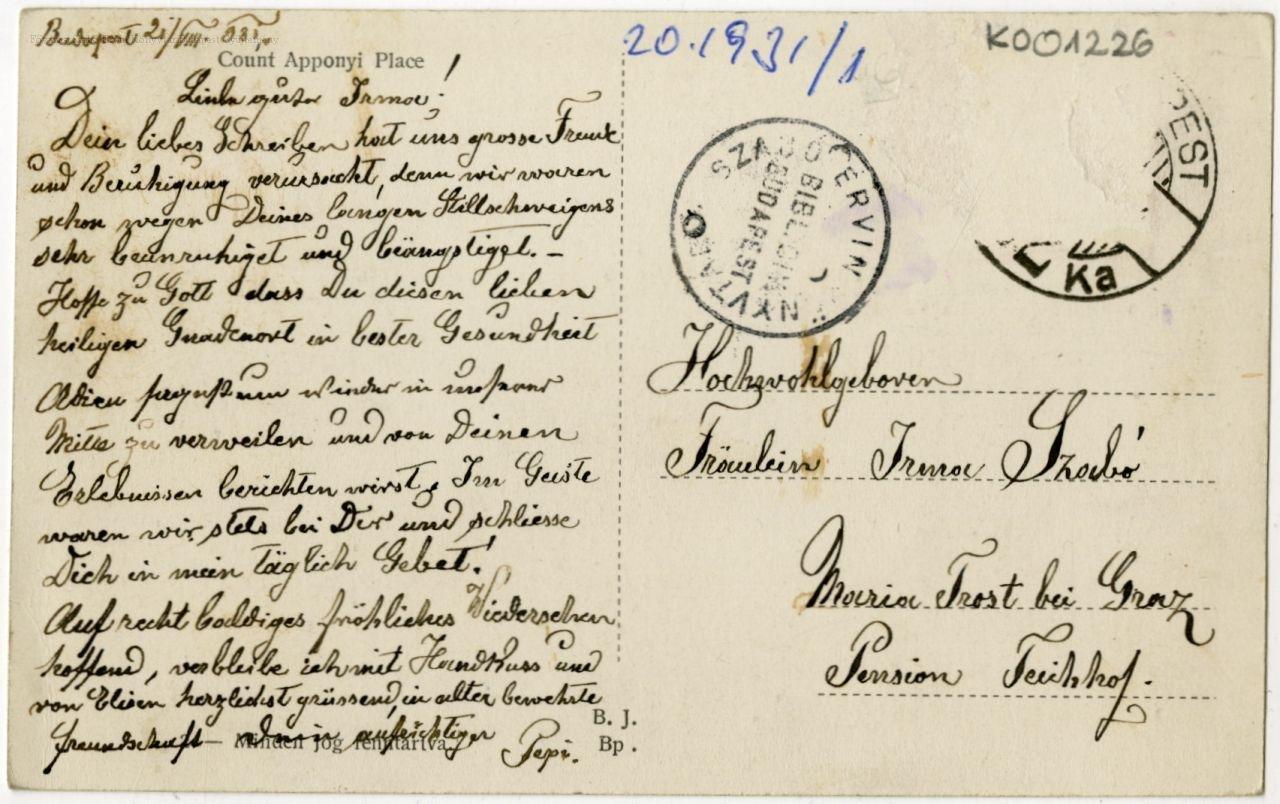 Budapest 21/VIII. 931.
Count Apponyi Place
Liebe gute Irma!
Dein liebes Schreiben hat uns grosse Freude
und Beruhigung verursacht, denn wir waren
schon wegen Deines langen Stillschweigens
sehr beunruhiget und beängstiget. –
Hoffe zu Gott dass Du diesen lieben
heiligen Gnadenort in bester Gesundheit
Adieu sagst um wieder in unserer
Mitte zu verweilen und von Deinen
Erlebnissen berichten wirst. Im Geiste
waren wir stets bei Dir und schliesse
Dich in mein täglich Gebet!
Auf recht baldiges fröhliches Wiedersehen
hoffend, verbleibe ich mit Handkuss und
von Elisen herzlichst grüssend, in alter bewehrte
freundschaft – aufrichtiger
Pepi.
Minden jog fenntartva.
B. J.
Bp.
20.1931/1
K001226
SZABÓ ERVIN
KÖNYVTÁR
BUDAPEST
PEST
Ka
Hochwohlgeboren
Fräulein Irma Szabó
Maria Trost bei Graz
Pension Teichhof.